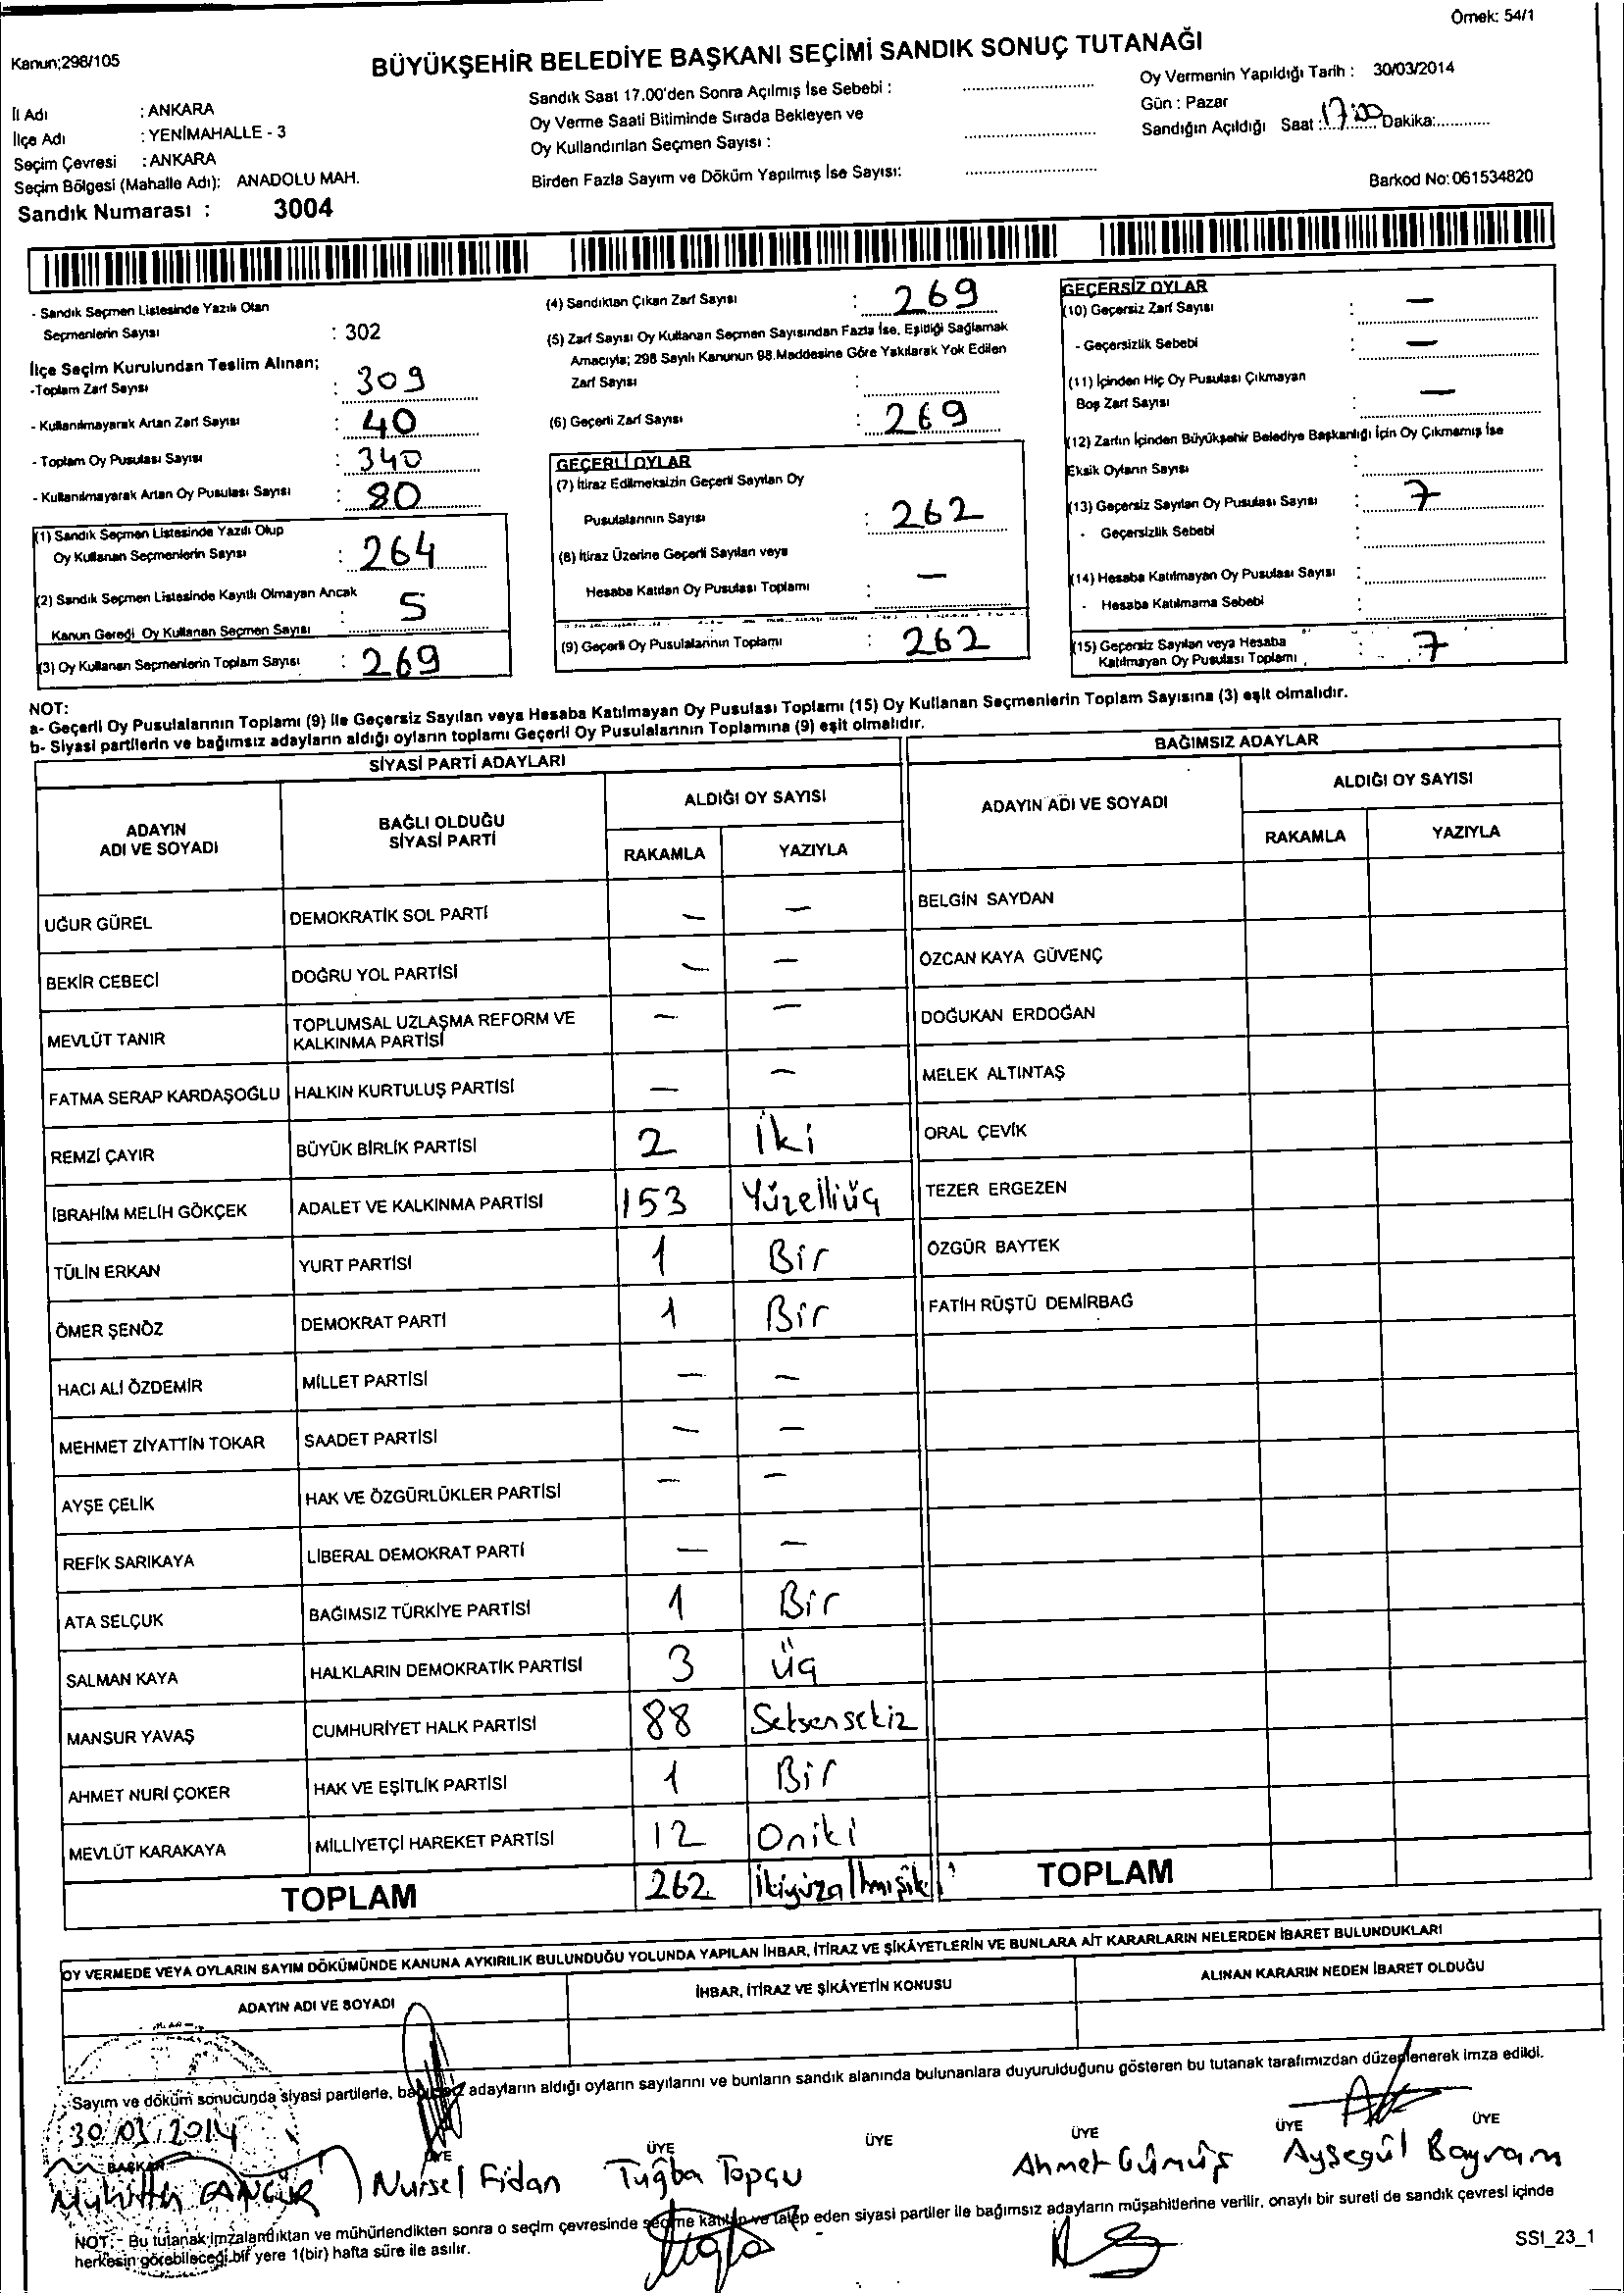 Örnek: 54/1
Kanun;298/105
BÜYÜKŞEHİR BELEDİYE BAŞKANI SEÇİMİ SANDIK SONUÇ TUTANAĞI
İl Adı : ANKARA
İlçe Adı : YENİMAHALLE - 3
Seçim Çevresi : ANKARA
Seçim Bölgesi (Mahalle Adı): ANADOLU MAH.
Sandık Numarası : 3004
Sandık Saat 17.00'den Sonra Açılmış İse Sebebi :
Oy Verme Saati Bitiminde Sırada Bekleyen ve
Oy Kullandırılan Seçmen Sayısı :
Birden Fazla Sayım ve Döküm Yapılmış İse Sayısı:
Oy Vermenin Yapıldığı Tarih : 30/03/2014
Gün : Pazar
Sandığın Açıldığı Saat : 17:00 Dakika:
Barkod No: 061534820
- Sandık Seçmen Listesinde Yazılı Olan
Seçmenlerin Sayısı : 302
İlçe Seçim Kurulundan Teslim Alınan;
-Toplam Zarf Sayısı : 309
- Kullanılmayarak Artan Zarf Sayısı : 40
- Toplam Oy Pusulası Sayısı : 340
- Kullanılmayarak Artan Oy Pusulası Sayısı : 80
(1) Sandık Seçmen Listesinde Yazılı Olup
Oy Kullanan Seçmenlerin Sayısı : 264
(2) Sandık Seçmen Listesinde Kayıtlı Olmayan Ancak
Kanun Gereği Oy Kullanan Seçmen Sayısı : 5
(3) Oy Kullanan Seçmenlerin Toplam Sayısı : 269
(4) Sandıktan Çıkan Zarf Sayısı : 269
(5) Zarf Sayısı Oy Kullanan Seçmen Sayısından Fazla İse, Eşitliği Sağlamak
Amacıyla; 298 Sayılı Kanunun 98.Maddesine Göre Yakılarak Yok Edilen
Zarf Sayısı :
(6) Geçerli Zarf Sayısı : 269
GEÇERLİ OYLAR
(7) İtiraz Edilmeksizin Geçerli Sayılan Oy
Pusulalarının Sayısı : 262
(8) İtiraz Üzerine Geçerli Sayılan veya
Hesaba Katılan Oy Pusulası Toplamı : —
(9) Geçerli Oy Pusulalarının Toplamı : 262
GEÇERSİZ OYLAR
(10) Geçersiz Zarf Sayısı : —
- Geçersizlik Sebebi : —
(11) İçinden Hiç Oy Pusulası Çıkmayan
Boş Zarf Sayısı : —
(12) Zarfın İçinden Büyükşehir Belediye Başkanlığı İçin Oy Çıkmamış İse
Eksik Oyların Sayısı :
(13) Geçersiz Sayılan Oy Pusulası Sayısı : 7
- Geçersizlik Sebebi :
(14) Hesaba Katılmayan Oy Pusulası Sayısı :
- Hesaba Katılmama Sebebi :
(15) Geçersiz Sayılan veya Hesaba
Katılmayan Oy Pusulası Toplamı : 7
NOT:
a- Geçerli Oy Pusulalarının Toplamı (9) ile Geçersiz Sayılan veya Hesaba Katılmayan Oy Pusulası Toplamı (15) Oy Kullanan Seçmenlerin Toplam Sayısına (3) eşit olmalıdır.
b- Siyasi partilerin ve bağımsız adayların aldığı oyların toplamı Geçerli Oy Pusulalarının Toplamına (9) eşit olmalıdır.
SİYASİ PARTİ ADAYLARI
ADAYIN ADI VE SOYADI BAĞLI OLDUĞU SİYASİ PARTİ ALDIĞI OY SAYISI
RAKAMLA YAZIYLA
UĞUR GÜREL DEMOKRATİK SOL PARTİ — —
BEKİR CEBECİ DOĞRU YOL PARTİSİ — —
MEVLÜT TANIR TOPLUMSAL UZLAŞMA REFORM VE KALKINMA PARTİSİ — —
FATMA SERAP KARDAŞOĞLU HALKIN KURTULUŞ PARTİSİ — —
REMZİ ÇAYIR BÜYÜK BİRLİK PARTİSİ 2 İki
İBRAHİM MELİH GÖKÇEK ADALET VE KALKINMA PARTİSİ 153 Yüzelliüç
TÜLİN ERKAN YURT PARTİSİ 1 Bir
ÖMER ŞENÖZ DEMOKRAT PARTİ 1 Bir
HACI ALİ ÖZDEMİR MİLLET PARTİSİ — —
MEHMET ZİYATTİN TOKAR SAADET PARTİSİ — —
AYŞE ÇELİK HAK VE ÖZGÜRLÜKLER PARTİSİ — —
REFİK SARIKAYA LİBERAL DEMOKRAT PARTİ — —
ATA SELÇUK BAĞIMSIZ TÜRKİYE PARTİSİ 1 Bir
SALMAN KAYA HALKLARIN DEMOKRATİK PARTİSİ 3 Üç
MANSUR YAVAŞ CUMHURİYET HALK PARTİSİ 88 Seksensekiz
AHMET NURİ ÇOKER HAK VE EŞİTLİK PARTİSİ 1 Bir
MEVLÜT KARAKAYA MİLLİYETÇİ HAREKET PARTİSİ 12 Oniki
TOPLAM 262
BAĞIMSIZ ADAYLAR
ADAYIN ADI VE SOYADI ALDIĞI OY SAYISI
RAKAMLA YAZIYLA
BELGİN SAYDAN
ÖZCAN KAYA GÜVENÇ
DOĞUKAN ERDOĞAN
MELEK ALTINTAŞ
ORAL ÇEVİK
TEZER ERGEZEN
ÖZGÜR BAYTEK
FATİH RÜŞTÜ DEMİRBAĞ
TOPLAM
OY VERMEDE VEYA OYLARIN SAYIM DÖKÜMÜNDE KANUNA AYKIRILIK BULUNDUĞU YOLUNDA YAPILAN İHBAR, İTİRAZ VE ŞİKÂYETLERİN VE BUNLARA AİT KARARLARIN NELERDEN İBARET BULUNDUKLARI
ADAYIN ADI VE SOYADI İHBAR, İTİRAZ VE ŞİKÂYETİN KONUSU ALINAN KARARIN NEDEN İBARET OLDUĞU
Sayım ve döküm sonucunda siyasi partilerle, bağımsız adayların aldığı oyların sayılarını ve bunların sandık alanında bulunanlara duyurulduğunu gösteren bu tutanak tarafımızdan düzenlenerek imza edildi.
30/03/2014
BAŞKAN ÜYE ÜYE ÜYE ÜYE ÜYE ÜYE
Nursel Fidan Tuğba Topçu Ahmet Gümüş Ayşegül Bayram
NOT:- Bu tutanak imzalandıktan ve mühürlendikten sonra o seçim çevresinde seçime katılıp ve talep eden siyasi partiler ile bağımsız adayların müşahitlerine verilir, onaylı bir sureti de sandık çevresi içinde
herkesin görebileceği bir yere 1(bir) hafta süre ile asılır.
SSI_23_1